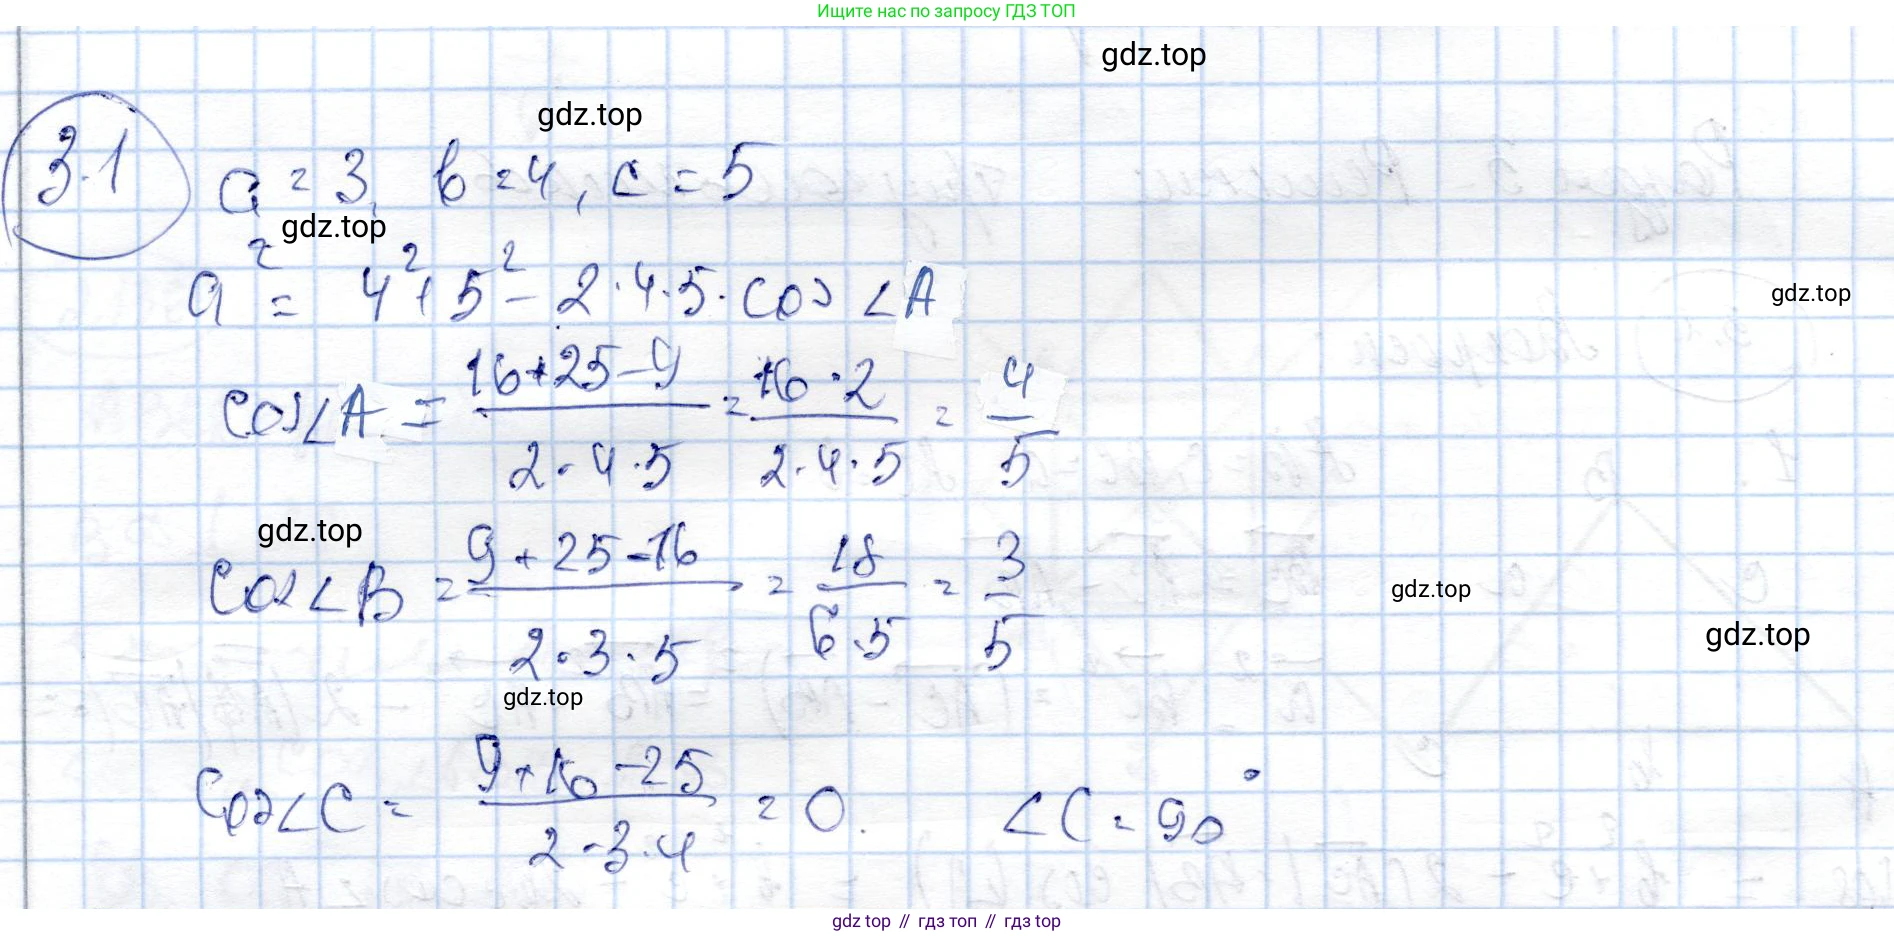 Ищите нас по запросу ГДЗ ТОП
gdz.top
gdz.top
3.1
a = 3, b = 4, c = 5
gdz.top
a² = 4² + 5² - 2·4·5·cos ∠A
gdz.top
cos∠A = (16+25-9)/(2·4·5) = (16·2)/(2·4·5) = 4/5
gdz.top
cos∠B = (9+25-16)/(2·3·5) = 18/(6·5) = 3/5
gdz.top
gdz.top
gdz.top
cos∠C = (9+16-25)/(2·3·4) = 0. ∠C = 90°
gdz.top // гдз топ // гдз top